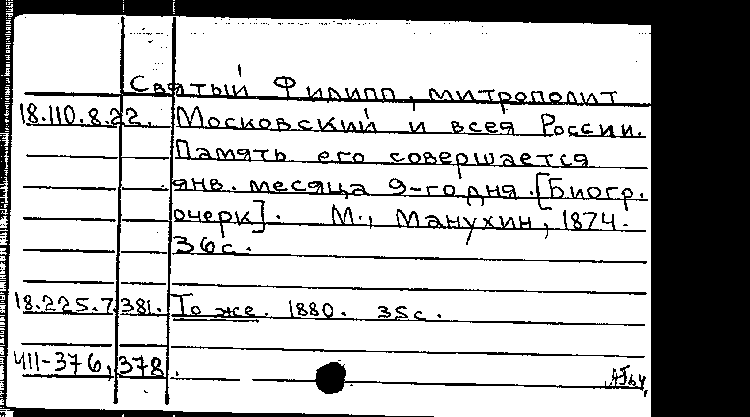 Святый Филипп, митрополит
18.110.8.22. Московский и всея России.
Память его совершается
янв. месяца 9-го дня. [Биогр.
очерк]. М., Манухин, 1874.
36с.
18.225.7.381. То же. 1880. 35с.
Ч11-376,378.